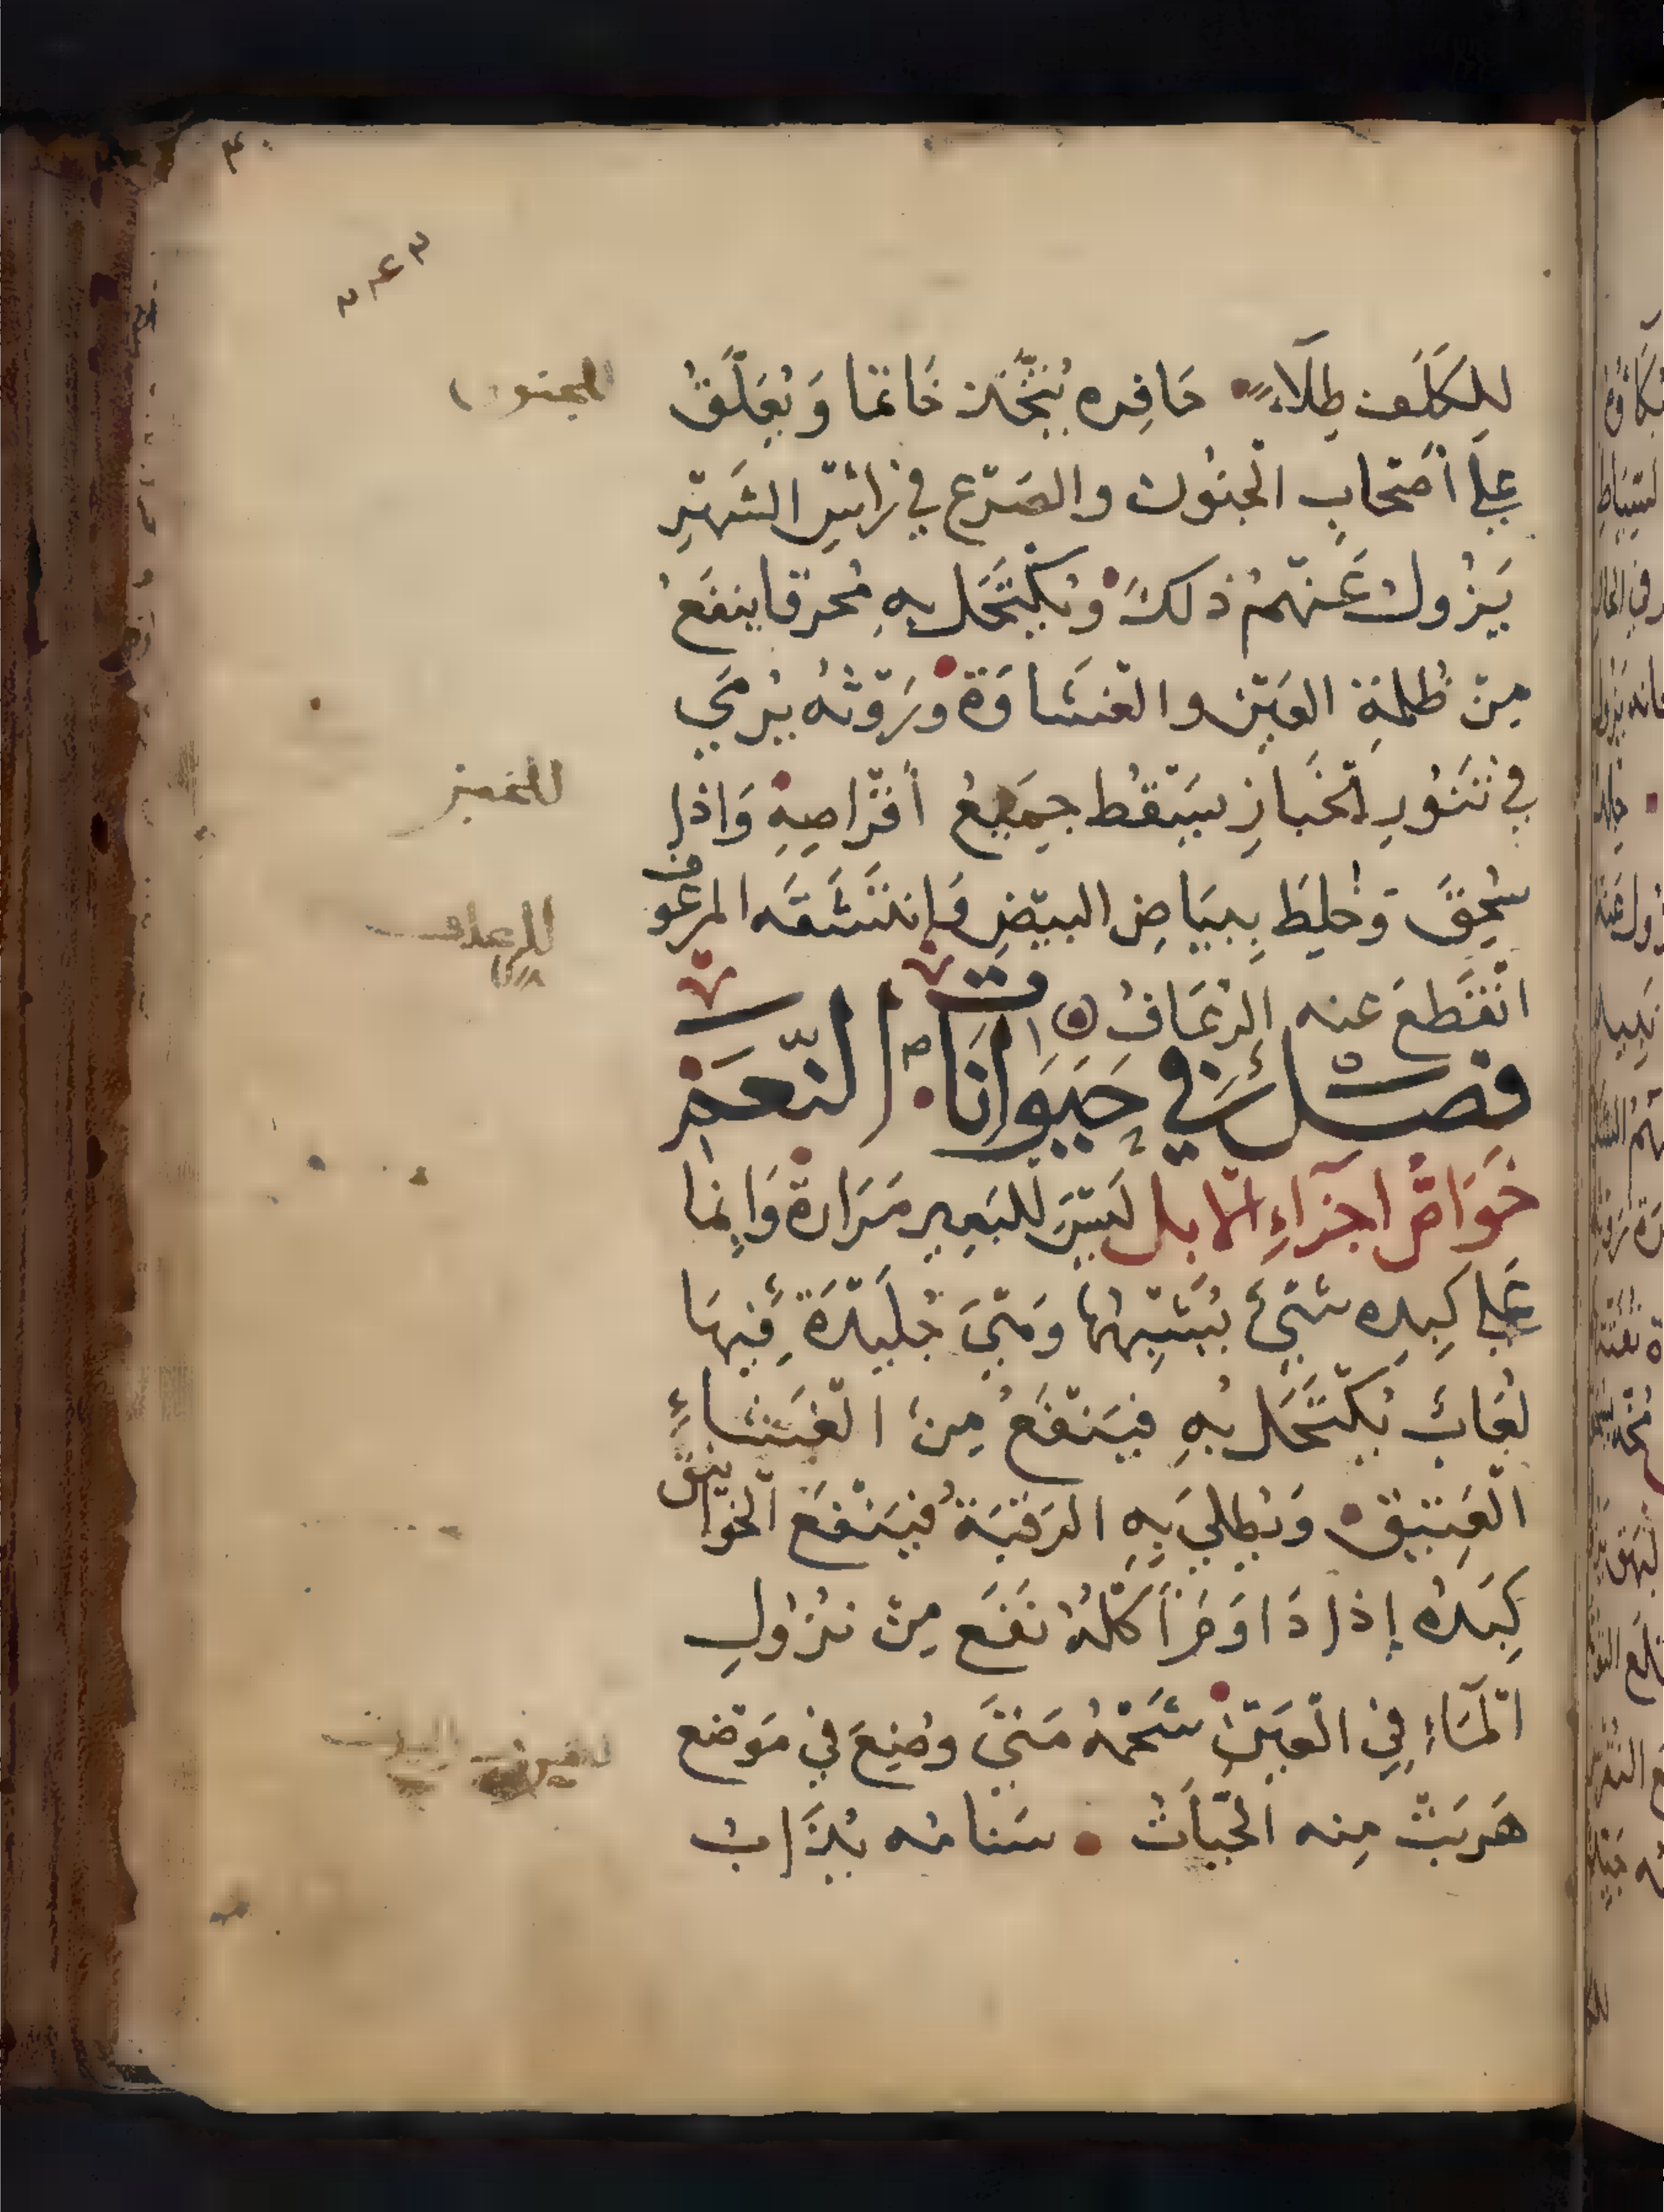 للكَلَف طِلَاءً حَافِره يُتَّخَذ خَاتما وَيُعَلَّقُ
عَلى أَصْحَابِ الْجنُون والصَرْع في رَائسِ الشَهْرِ
يَزُولُ عَنْهمُ ذلكَ وَيُكْتَحَل بِهِ مُحرقا ينفَعُ
مِنْ ظُلمَةِ العَيْن والغشَاوَة وَرَوْثهُ يُرْمَي
في تَنُورِ الخَبازِ يَسْقُط جمَيعُ أَقْرَاصِهِ وَاذا
سُحِقَ وَخُلِطَ بِبيَاضِ البيْضِ وَانتَشَقَه المرعُوف
انْقَطعَ عنه الرُعَافُ
فصْل في حَيَوَانَات النّعَم
خَوَاصُّ اجزَاءِ الابل لَيْسَ للبَعِير مَرَارة وَانما
عَلى كَبِده شَيْئ يُشْبِهُها وَهْيَ جُلَيْدَة فِيهَا
لُعَابٌ يُكْتَحَل بِهِ فيَنْفَعُ مِن الْغشاءِ
الْعَتِيق وَيُطلي بِهِ الرَقبَة فيَنْفَعُ الْخوانيق
كَبِدُه إِذا دَاوَمَ أَكلهُ نَفَع مِنْ نزُولِ
الْمَاءِ فِي الْعَيْن شَحْمُهُ مَتَيَ وضِعَ في مَوْضع
هَرَبَتْ مِنه الْحَيَّاتُ سَنامُه يُذَابُ
للجنون
للخبز
للرعاف